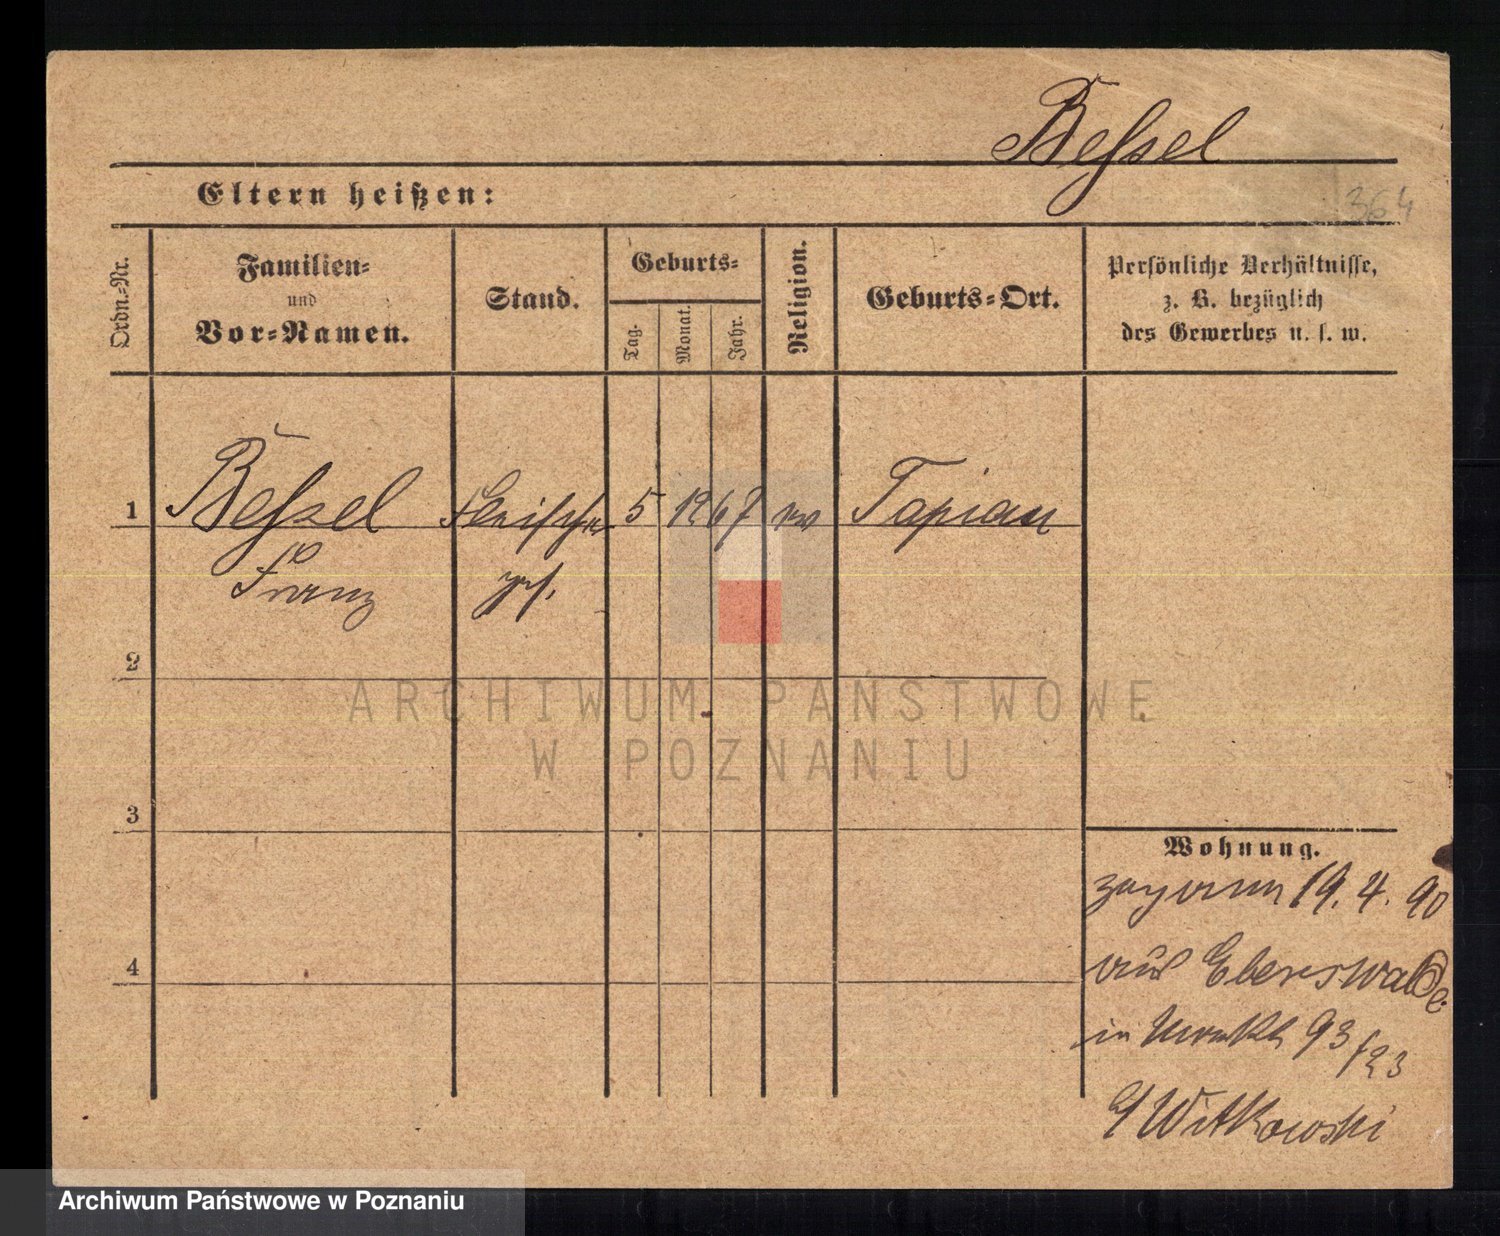 Bessel
364
Eltern heißen:
Ordn.-Nr.
Familien-
und
Vor-Namen.
Stand.
Geburts-
Tag.
Monat.
Jahr.
Religion.
Geburts-Ort.
Persönliche Verhältnisse,
z. B. bezüglich
des Gewerbes u. s. w.
1 Bessel Fleischer 5 12 67 ev Tapiau
Franz ges.
2
ARCHIWUM PAŃSTWOWE
W POZNANIU
3
Wohnung.
19. 4. 90
4
aus Eberswalde
in 93/23
Witkowski
Archiwum Państwowe w Poznaniu